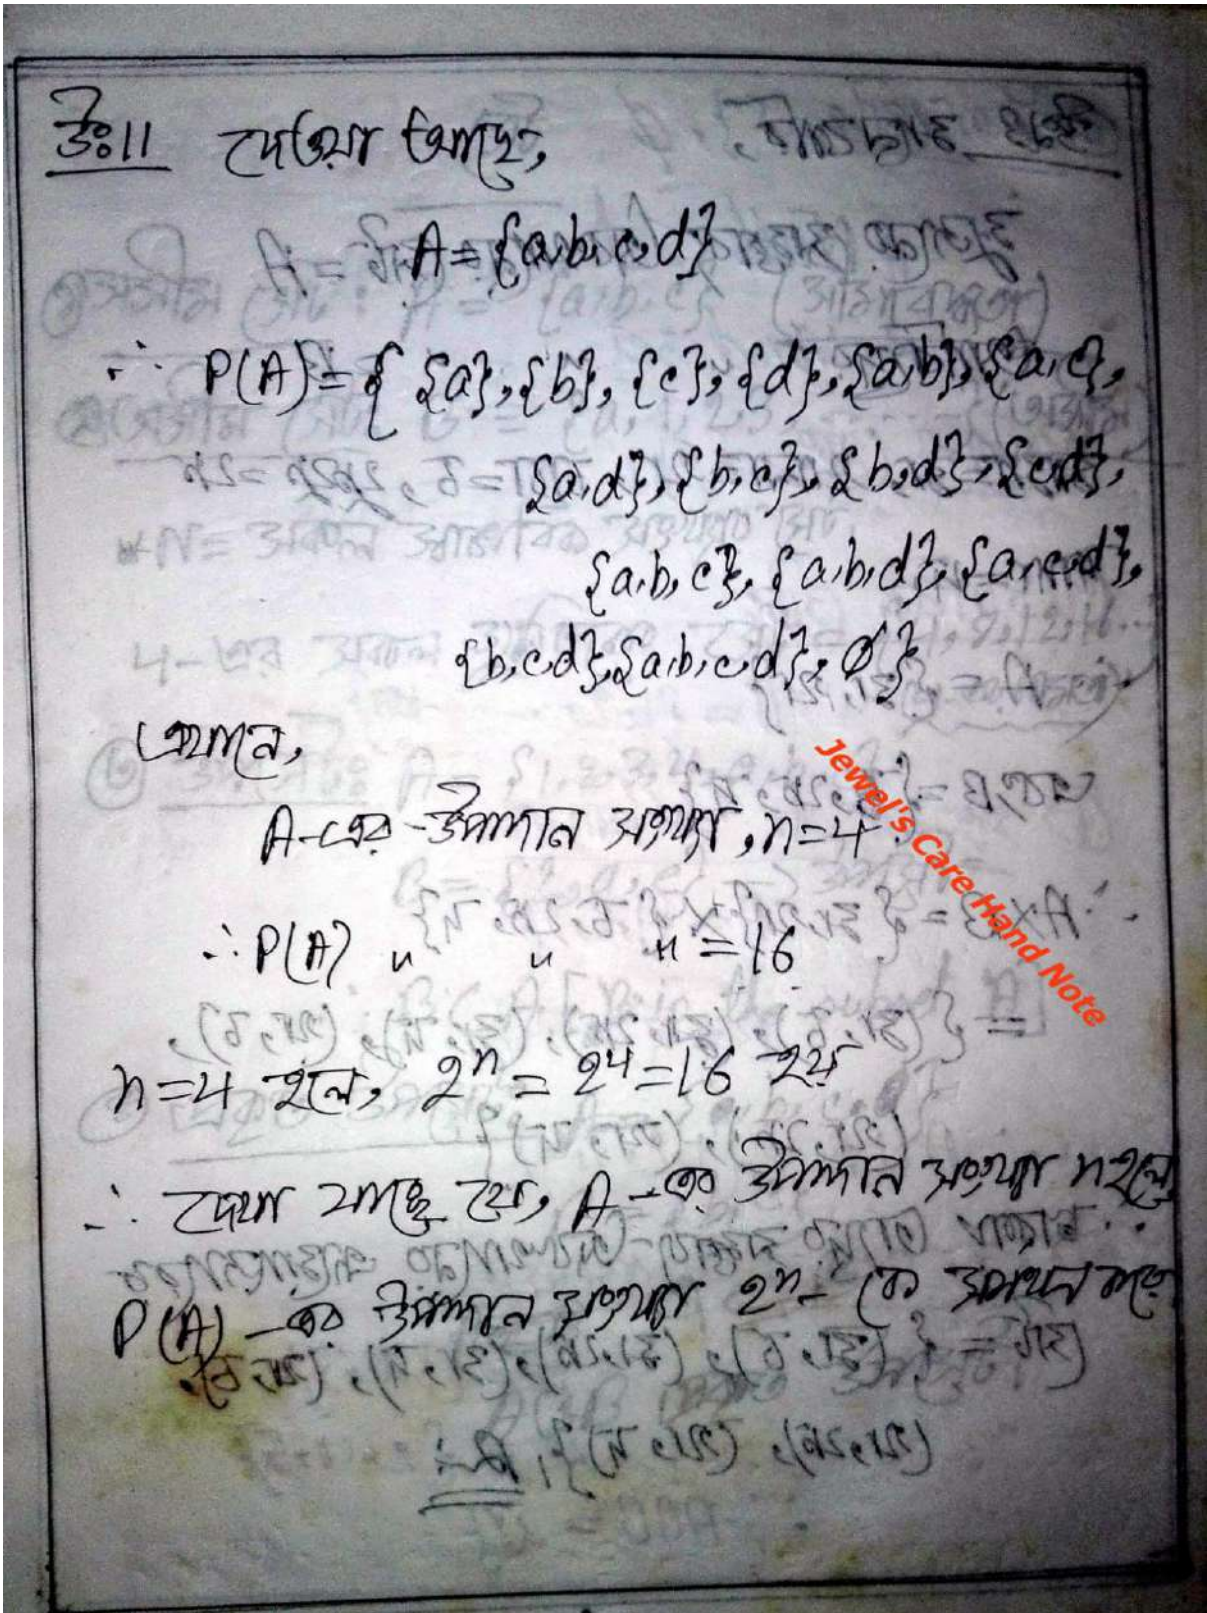 উঃ॥ দেওয়া আছে,
A = {a, b, c, d}
∴ P(A) = { {a}, {b}, {c}, {d}, {a, b}, {a, c},
{a, d}, {b, c}, {b, d}, {c, d},
{a, b, c}, {a, b, d}, {a, c, d},
{b, c, d}, {a, b, c, d}, Ø }
এখানে,
A-এর উপাদান সংখ্যা, n = 4
∴ P(A) " " " = 16
n = 4 হলে, 2ⁿ = 2⁴ = 16 হয়
∴ দেখা যাচ্ছে যে, A-এর উপাদান সংখ্যা n হলে
P(A)-এর উপাদান সংখ্যা 2ⁿ- কে সমর্থন করে
Jewel's Care Hand Note